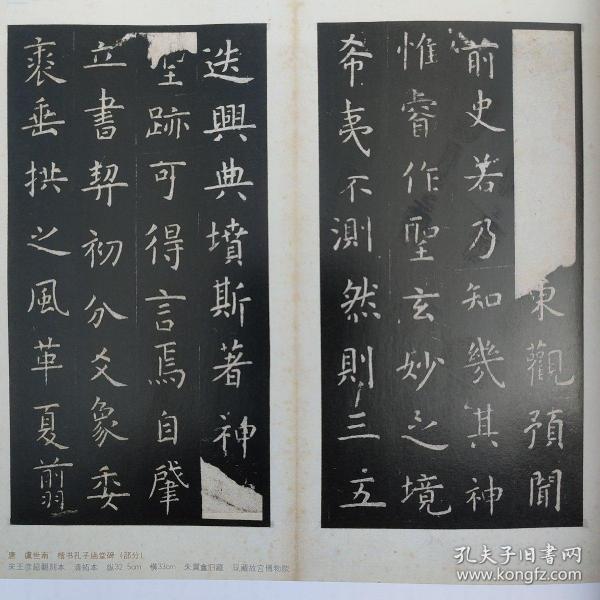 東觀預聞
前史若乃知幾其神
惟睿作聖玄妙之境
希夷不測然則三五
迭興典墳斯著神
聖跡可得言焉自肇
立書契初分爻象委
裘垂拱之風革夏翦
唐 虞世南 楷书孔子庙堂碑(部分)
宋王彦超翻刻本 清拓本 纵32.5cm 横33cm 朱翼盦旧藏 现藏故宫博物院
孔夫子旧书网
www.kongfz.com